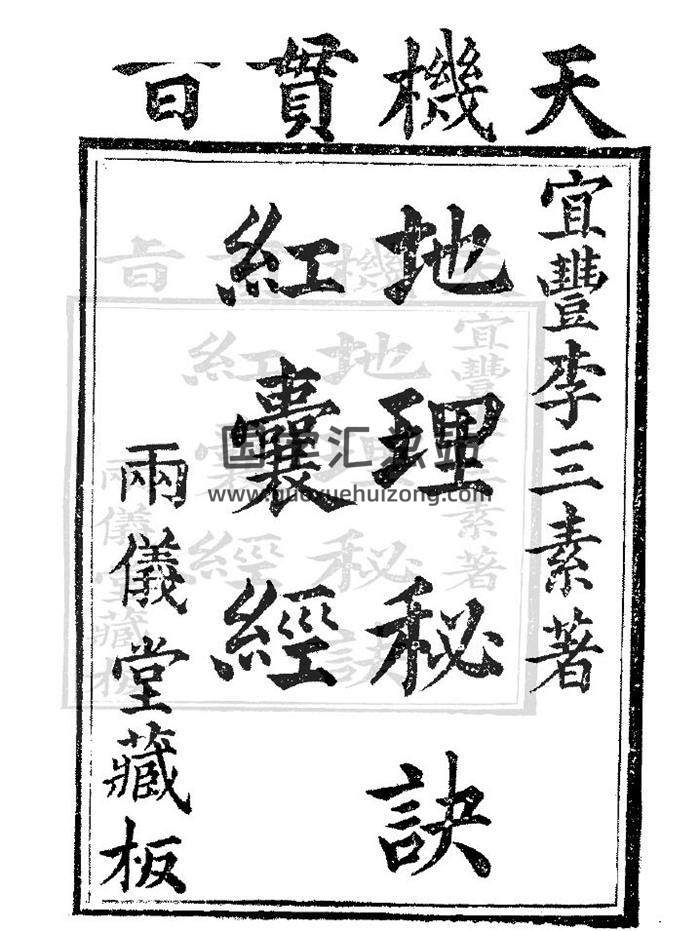 天機貫旨
宜豐李三素著
地理秘訣
紅囊經
兩儀堂藏板
www.guoxuehuizong.com